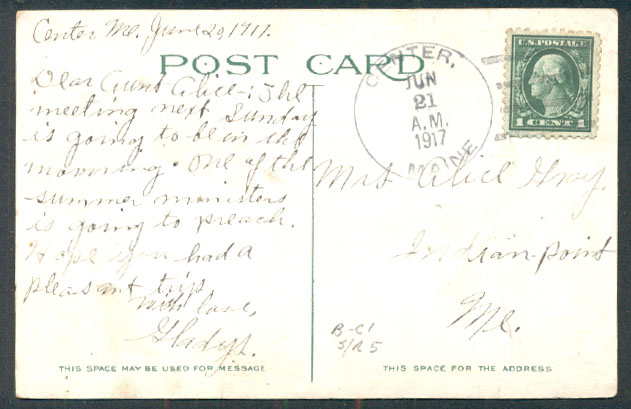 Center Me. June 20, 1917.
POST CARD
Dear Aunt Alice:- The
meeting next Sunday
is going to be in the
morning. One of the
summer ministers
is going to preach.
Hope you had a
pleasant trip.
With love,
Gladys.
THIS SPACE MAY BE USED FOR MESSAGE
CENTER,
JUN
21
A.M.
1917
MAINE
U.S. POSTAGE
1 CENT 1
Mrs Alice Gray.
Indian-point
Me.
B-C1
S/R 5
THIS SPACE FOR THE ADDRESS